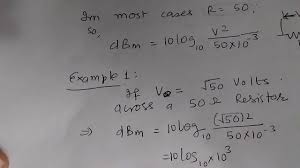 In most cases R = 50.
so,
dBm = 10 log₁₀ V² / 50×10⁻³
Example 1:
If V₀ = √50 Volts
across a 50 Ω Resistor
⇒ dBm = 10 log₁₀ (√50)² / 50×10⁻³
= 10 log₁₀ 10³